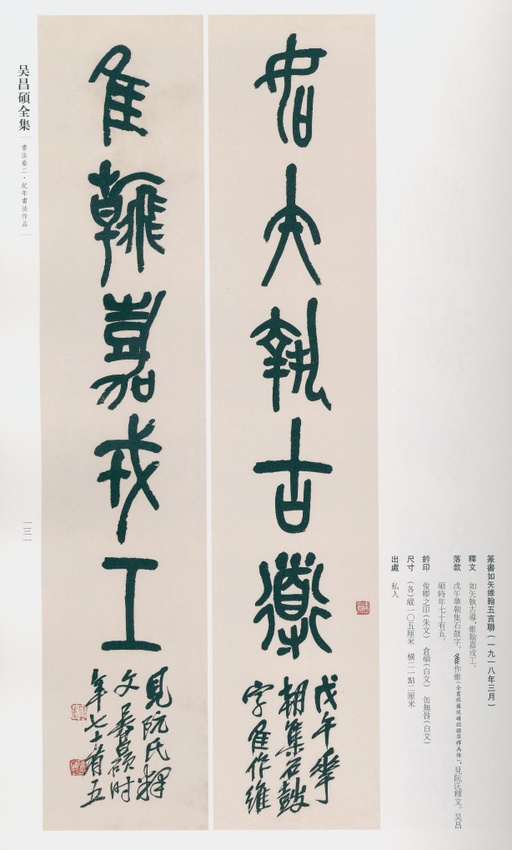 篆書如矢維翰五言聯(一九一八年三月)
釋文 如矢執古導,維翰嘉戎工。
落款 戊午華朝集石鼓字,隹作維
見阮氏釋文。吳昌
碩時年七十有五。
鈐印 俊卿之印(朱文) 倉碩(白文) 缶無咎(白文)
尺寸 (各)縱一〇五厘米 橫二一點二厘米
出處 私人
如矢執古導
戊午華
朝集石鼓
字隹作維
隹翰嘉戎工
見阮氏釋
文吳昌碩時
年七十有五
吴昌碩全集
書法卷二·紀年書法作品
一三一